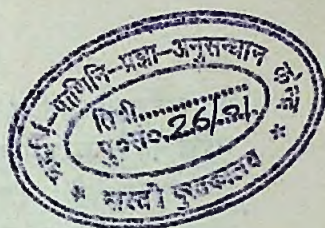 पाणिनि-प्रज्ञा-अनुसन्धान
तिथी..............
पु०सं०.26/21.
* भारती पुस्तकालय *